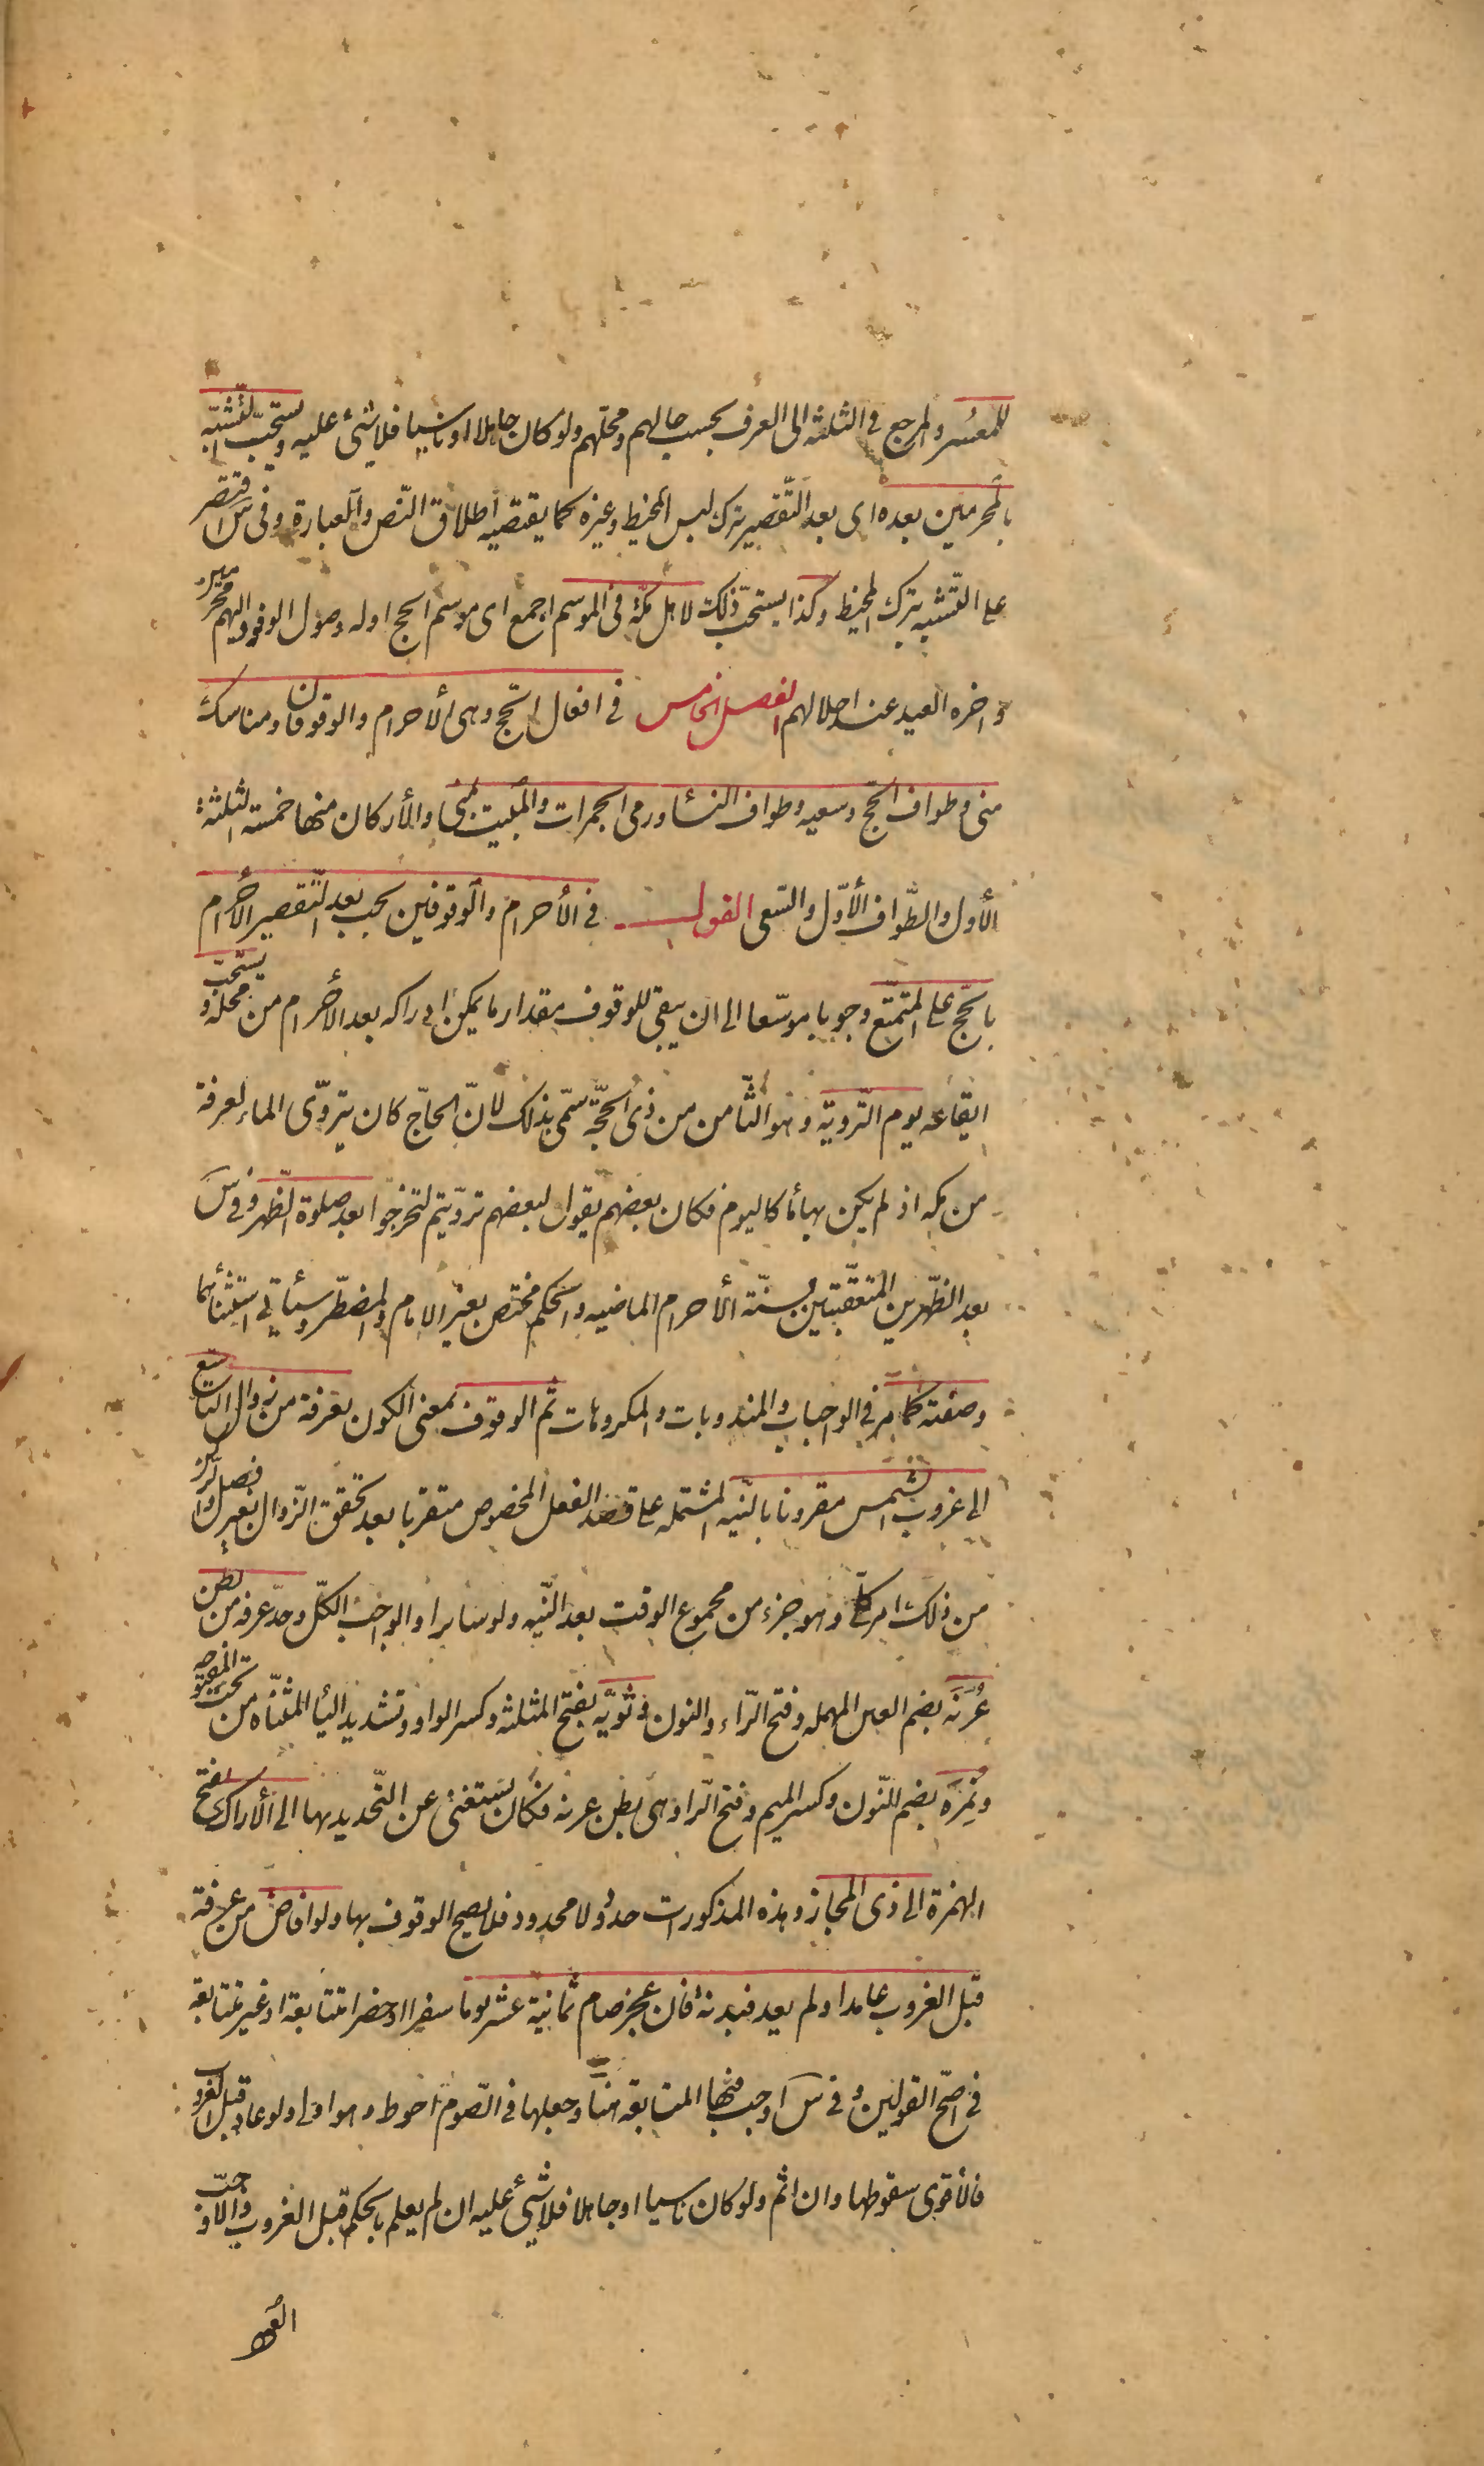 للمعسر والمرجع فى الثلثة الى العرف بحسب حالهم ومحلهم ولو كان جاهلا او ناسيا فلا شئ عليه ويستحب التشبه
بالمحرمين بعده اى بعد التقصير بترك لبس المخيط وغيره كما يقتضيه اطلاق النص والعبارة وفى س اقتصر
على التشبه بترك المخيط وكذا يستحب ذلك لاهل مكة فى الموسم اجمع اى موسم الحج اوله وصول الوفود اليهم محرمين
واخره العيد عند احلالهم الفصل الخامس فى افعال الحج وهى الأحرام والوقوفان ومناسك
منى وطواف الحج وسعيه وطواف النساء ورمى الجمرات والمبيت بمنى والأركان منها خمسة الثلثة
الأول والطواف الأول والسعى القول فى الأحرام والوقوفين يجب بعد التقصير الأحرام
بالحج على المتمتع وجوبا موسعا الى ان يبقى للوقوف مقدار ما يمكن ادراكه بعد الأحرام من محله ويستحب
ايقاعه يوم التروية وهو الثامن من ذى الحجة سمى بذلك لان الحاج كان يتروى الماء لعرفة
من مكه اذ لم يكن بها ماء كاليوم فكان بعضهم يقول لبعضهم ترويتم لتخرجوا بعد صلوة الظهر وفى س
بعد الظهرين المتعقبتين لسنة الأحرام الماضيه والحكم مختص بغير الامام والمضطر وسيأتى استثنائهما
وصفته كما مر فى الواجبات والمندوبات والمكروهات ثم الوقوف بمعنى الكون بعرفة من زوال التاسع
الى غروب الشمس مقرونا بالنيه المشتمله على قصد الفعل المخصوص متقربا بعد تحقق الزوال بغير فصل والركن
من ذلك امر كلى وهو جزء من مجموع الوقت بعد النيه ولو سايرا والواجب الكل وحد عرفه من بطن
عُرَنَه بضم العين المهمله وفتح الراء والنون وثويّه بفتح المثلثه وكسر الواو وتشديد الياء المثناه من تحت المفتوحه
ونَمِرَه بضم النون وكسر الميم وفتح الرا وهى بطن عرنه فكان يستغنى عن التحديد بها الى الأراك بفتح
الهمزة الى ذى المجاز وهذه المذكورات حدود لا محدود فلا يصح الوقوف بها ولو افاض من عرفة
قبل الغروب عامدا ولم يعد فبدنة فان عجز صام ثمانية عشر يوما سفرا او حضرا متتابعة او غير متتابعه
فى اصح القولين وفى س اوجب فيها المتابعه هنا وجعلها فى الصوم احوط وهو اولى ولو عاد قبل الغروب
فالاقوى سقوطها وان اثم ولو كان ناسيا او جاهلا فلا شئ عليه ان لم يعلم بالحكم قبل الغروب والا وجب
العود